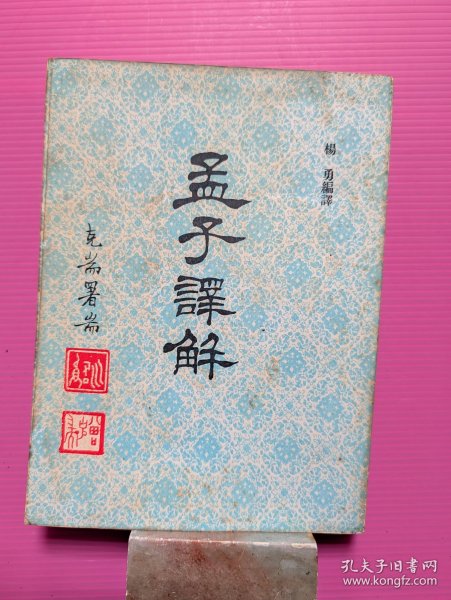 楊勇編譯
孟子譯解
克耑署耑
孔夫子旧书网
www.kongfz.com